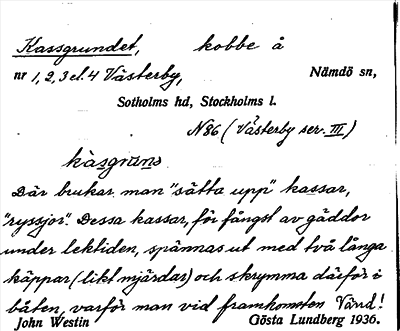 Kassgrundet, kobbe å
nr 1, 2, 3 el. 4 Västerby, Nämdö sn,
Sotholms hd, Stockholms l.
N86 (Västerby ser. III)
kàsgrùns
Där brukar man "sätta upp" kassar,
"ryssjor". Dessa kassar, för fångst av gäddor
under lektiden, spännas ut med två långa
käppar (likt mjärdar) och skrymma därför i
båten, varför man vid framkomsten Vänd!
John Westin Gösta Lundberg 1936.